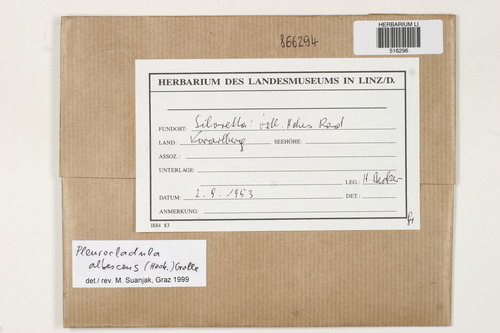 866294
HERBARIUM LI
516296
HERBARIUM DES LANDESMUSEUMS IN LINZ/D.
FUNDORT: Silvretta: östl. Hohes Rad
LAND: Vorarlberg SEEHÖHE:
ASSOZ.:
UNTERLAGE:
LEG.: H.
DATUM: 2.9.1953 DET.:
ANMERKUNG:
I884 83
Pleurocladula
albescens (Hook.) Grolle
det./ rev. M. Suanjak, Graz 1999